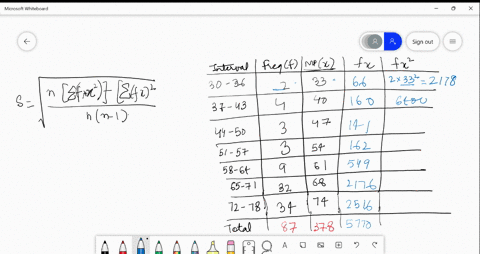 Microsoft Whiteboard
Sign out
Interval freq(f) MP(x) fx fx²
30-36 2 33 66 2×33²=2178
37-43 4 40 160 6400
44-50 3 47 141
51-57 3 54 162
58-64 9 61 549
65-71 32 68 2176
72-78 34 74 2516
Total 87 378 5770
S = √ n[Σfx²] - [Σfx]²
n(n-1)